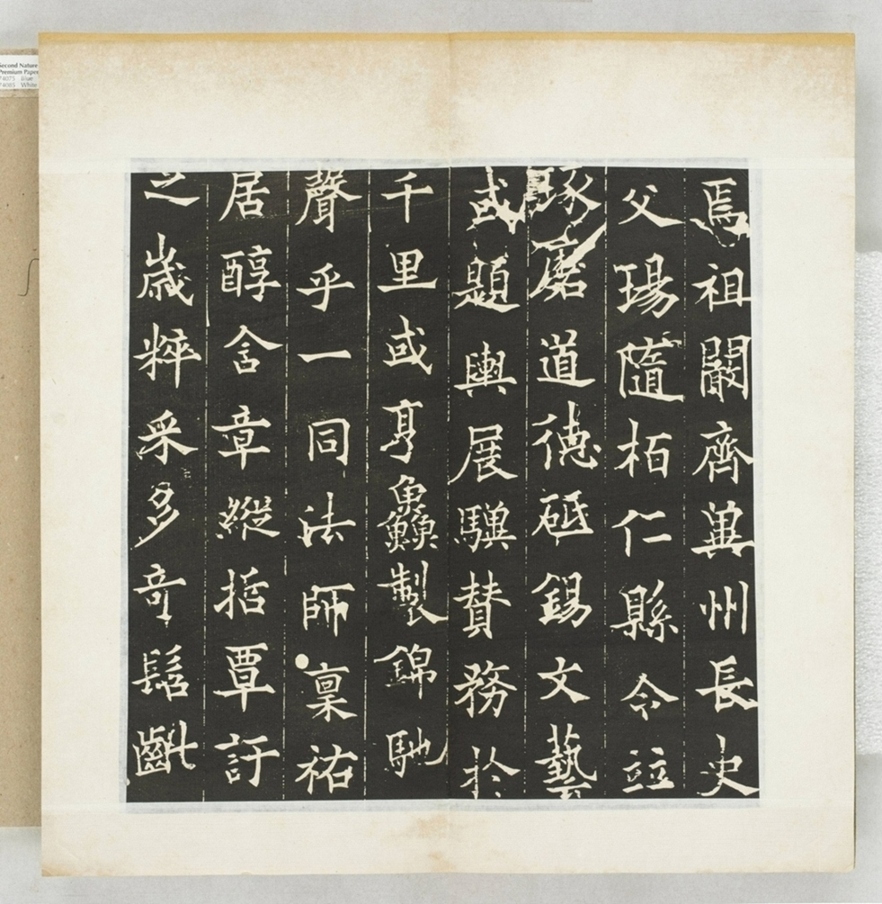 焉祖闞齊冀州長史
父瑒隨柏仁縣令竝
琢磨道德砥錫文藝
或題輿展驥賛務於
千里或亨鱻製錦馳
聲乎一同法師稟祐
居醇含章縱括覃訏
之歲粹采多奇髫齔
Second Nature
Premium Paper